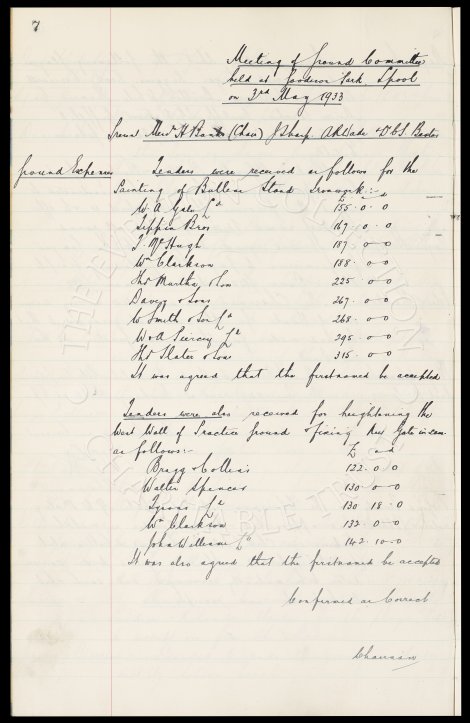 7
Meeting of Ground Committee
held at Goodison Park, Lpool
on 3rd May 1933
Present Messrs H Banks (Chair) J Sharp A R Wade & D C S Baxter
Ground Expenses Tenders were received as follows for the
Painting of Bullens Stand Ironwork:-
£ s d
W. A. Gales Ld 155 . 0 . 0
Tippin Bros 167 . 0 . 0
J. McHugh 187 . 0 - 0
Wm Clarkson 188 . 0 - 0
Thos Murtha & Son 225 0 - 0
Davey & Sons 267 . 0 - 0
W Smith & Son Ld 268 . 0 - 0
W & A Ld 295 . 0 - 0
Thos Slater & Sons 315 . 0 - 0
It was agreed that the firstnamed be accepted
Tenders were also received for heightening the
West Wall of Practice Ground & fixing New Gate in
as follows:-
£ s d
Bragg & Collins 122 . 0 0
Walter Spencer 130 0 - 0
Tysons Ld 130 18 - 0
Wm Clarkson 132 . 0 - 0
John Williams Ld 142 . 10 - 0
It was also agreed that the firstnamed be accepted
Confirmed as Correct
Chairman
THE EVERTON COLLECTION
CHARITABLE TRUST